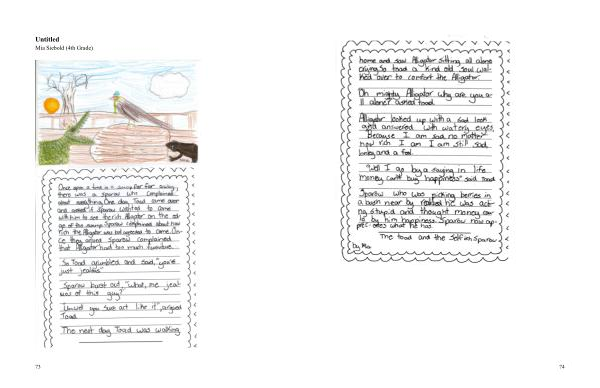 Untitled
Mia Siebold (4th Grade)
Once upon a time in a swamp far far away,
there was a sparow who complained
about everything. One day, Toad came over
and asked if Sparow wanted to come
with him to see the rich Alligator on the ed-
ge of the swamp. Sparow complained about how
rich the Alligator was but agreed to come. On-
ce they arived Sparow complained
that Alligator had too much furniture.
So Toad grumbled and said, "you're
just jealous"
Sparow burst out, "what, me jeal-
ous of this guy?"
well you sure act like it", argued
Toad.
The next day, Toad was walking
home and saw Alligator sitting all alone
crying. So toad a kind old soul wal-
ked over to comfort the Alligator.
Oh mighty Alligator why are you a-
ll alone? asked toad.
Alligator looked up with a sad look
and answered with watery eyes,
Because I am sad, no matter
how rich I am I am still sad,
lonely and a fool.
"Well I go by a saying in life
money can't buy happiness" said Toad
Sparow who was picking berries in
a bush near by realised he was act-
ing stupid and thought money could
buy him happiness. Sparow now ap-
preciates what he has.
The toad and the Selfish Sparow
by Mia
73
74